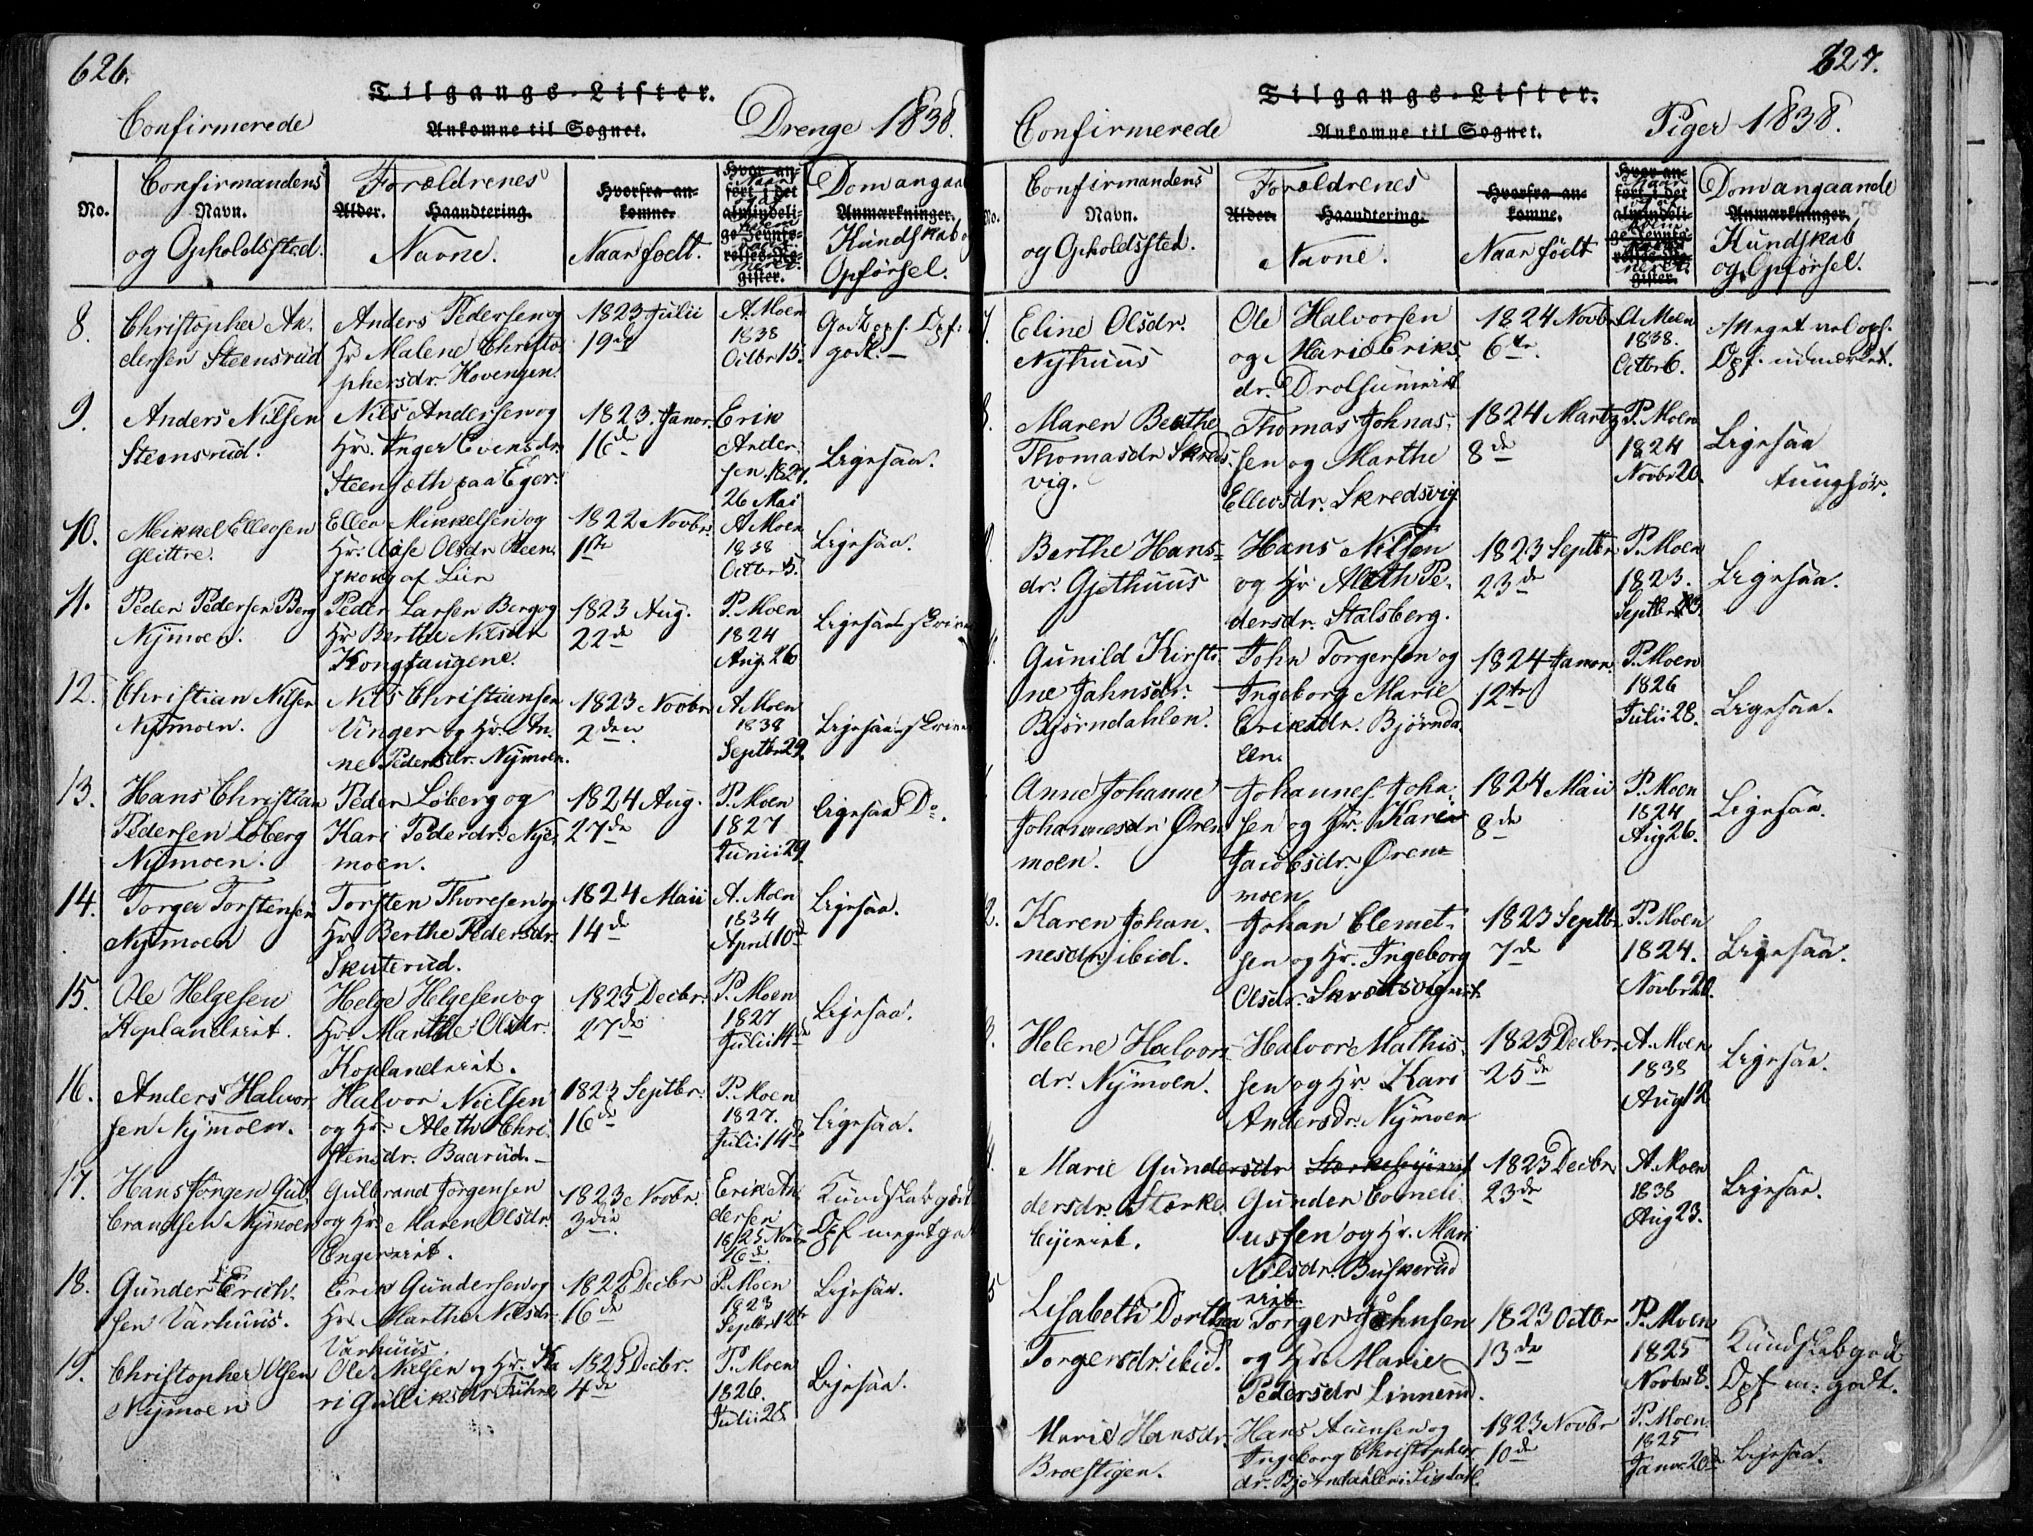 626.
Tilgangs-Lister.
Confirmerede
Ankomne til Sognet.
Drenge 1838.
No.
Confirmandens
Navn.
og Opholdssted.
Forældrenes
Alder.
Haandtering.
Navne.
Hvorfra an-
komne.
Naar født.
Hvor an-
ført i det
almindeli-
ge Jevnfø-
relses-Re-
gister.
Dom angaa
Anmærkninger.
Kundskab o
Opførsel.
8.
Christopher An-
dersen Steensrud
Anders Pedersen og
Hr Malene Christo-
phersdr. Hovengen.
1823 Julii
19de
A. Moen
1838
Octbr 15.
Godt opf. Opf:
godt.
9.
Anders Nilsen
Steensrud.
Nils Andersen og
Hr. Inger Evensdr.
Steensæth paa Eger.
1823. Janur.
16de
Erik
Ander
sen 1827.
26 Mai
Ligesaa.
10.
Mikkel Ellevsen
Glittre.
Ellev Mikkelsen og
Hr. Aase Olsdr. Steen-
skoug af Lier
1822 Novbr.
1ste
A Moen
1838
Octbr 5.
Ligesaa.
11.
Peder Pedersen Berg
Nymoen.
Peder Larsen Berg og
Hr Berthe Nilsdr
Kongshaugene.
1823 Aug.
22de
P. Moen
1824
Aug. 26
Ligesaa
12.
Christian Nilsen
Nymoen.
Nils Christiansen
Vinger og Hr. An-
ne Pedersdr. Nymoen.
1823 Novbr
2den
A Moen
1838
Septbr 29.
Ligesaa
13.
Hans Christian
Pedersen Løberg
Nymoen.
Peder Løberg og
Kari Pedersdr. Nye-
moen.
1824 Aug.
27de
P. Moen
1827
Junii 29
Ligesaa Do.
14.
Torger Torstensen
Nymoen
Torsten Thoresen og
Hr Berthe Pedersdr.
Skuterud.
1824 Maii
14de
A. Moen
1834
April 10d
Ligesaa.
15.
Ole Helgesen
Hoplandeiet.
Helge Helgesen og
Hr. Marthe Olsdr.
Hoplandeiet.
1823 Decbr.
27de
P. Moen
1827
Julii 14de
Ligesaa.
16.
Anders Halvor
sen Nymoen.
Halvor Nielsen
og Hr. Aleth Chri-
stensdr. Baarud.
1823 Septbr.
16de
P. Moen
1827.
Julii 14de
Ligesaa.
17.
Hans Jørgen Gul
brandsen Nymoen
Gulbrand Jørgensen
og Hr. Maren Olsdr.
Engereiet.
1823 Novbr.
3die
Erik An
dersen
1825 Novbr
16d.
Kundskab godt
Opf meget god
18.
Gunder Erich-
sen Varhuus.
Erik Gundersen og
Hr. Marthe Nilsdr.
Varhuus.
1822 Decbr
16de
P. Moen
1823
Septbr 12te
Ligesaa.
19.
Christopher Olsen
Nymoen
Ole Nielsen og Hr. Ka
ri Gulliksdr Fuhre
1823 Decbr.
4de
P. Moen
1826.
Julii 28
Ligesaa.
627.
Tilgangs-Lister.
Confirmerede
Ankomne til Sognet.
Piger 1838.
No.
Confirmandens
Navn.
og Opholdsted.
Forældrenes
Alder.
Haandtering.
Navne.
Hvorfra an-
komne.
Naar født
Hvor an-
ført i det
almindeli-
ge Jevnfø-
relses-Re-
gister.
Dom angaaende
Anmærkninger.
Kundskab
og Opførsel.
7.
Eline Olsdr.
Nyhuus
Ole Halvorsen
og Marie Eriks
dr. Drolsumeiet
1824 Novbr
6te.
A Moen
1838.
Octbr 6.
Meget vel opl.
Opf. udmærket.
8.
Maren Beathe
Thomasdr Skreds-
vig.
Thomas Johnas-
sen og Marthe
Ellevsdr. Skredsvig
1824 Martz
8de
P. Moen
1824
Novbr 20.
Ligesaa
tunghør.
Berthe Hans-
dr. Gjethuus
Hans Nilsen
og Hr Aleth Pe-
dersdr. Stalsberg.
1823 Septbr
23de
P. Moen
1823.
Septbr 23.
Ligesaa.
Gunild Kirsti-
ne Jahnsdr.
Bjørndahlen.
John Torgersen og
Ingeborg Marie
Eriksdr. Bjørnda-
len.
1824 Januar
12te
P. Moen
1826
Julii 28.
Ligesaa.
Anne Johanne
Johannesdr Øren
moen.
Johannes Joha-
sen og Hr. Karen
Jacobsdr. Øren-
moen
1824 Maii
8de
P. Moen
1824
Aug 26.
Ligesaa.
2.
Karen Johan-
nesdr ibid.
Johan Clemet-
sen og Hr. Ingeborg
Olsdr. Skredsvigeiet.
1823 Septbr
7de
P. Moen
1824.
Novbr 20.
Ligesaa.
3.
Helene Halvors-
dr. Nymoen.
Halvor Mathis-
sen og Hr. Kari
Andersdr. Nymoen
1823 Decbr.
25de
A. Moen
1838
Aug 12
Ligesaa.
4.
Marie Gundersdr Størkebyeiet
dersdr. Størke-
byeiet.
Gunder Corneli-
ussen og Hr. Mari
Nilsdr. Buskerud
eiet.
1823 Decbr
23de
A. Moen
1838
Aug 23.
Ligesaa.
5
Lisabeth Dorthea
Torgersdr. ibid.
Torger Johnsen
og Hr. Marie
Pedersdr Linnerud.
1823 Octbr
13de
P. Moen
1825
Novbr 8.
Kundskab god
Opf m. godt.
Marie Hansdr.
Broestigen.
Hans Auensen og
Ingeborg Christopher
dr. Bjørndahlen i Sigdahl
1823 Novbr
10de
P. Moen.
1825
Janr. 20de
Ligesaa.